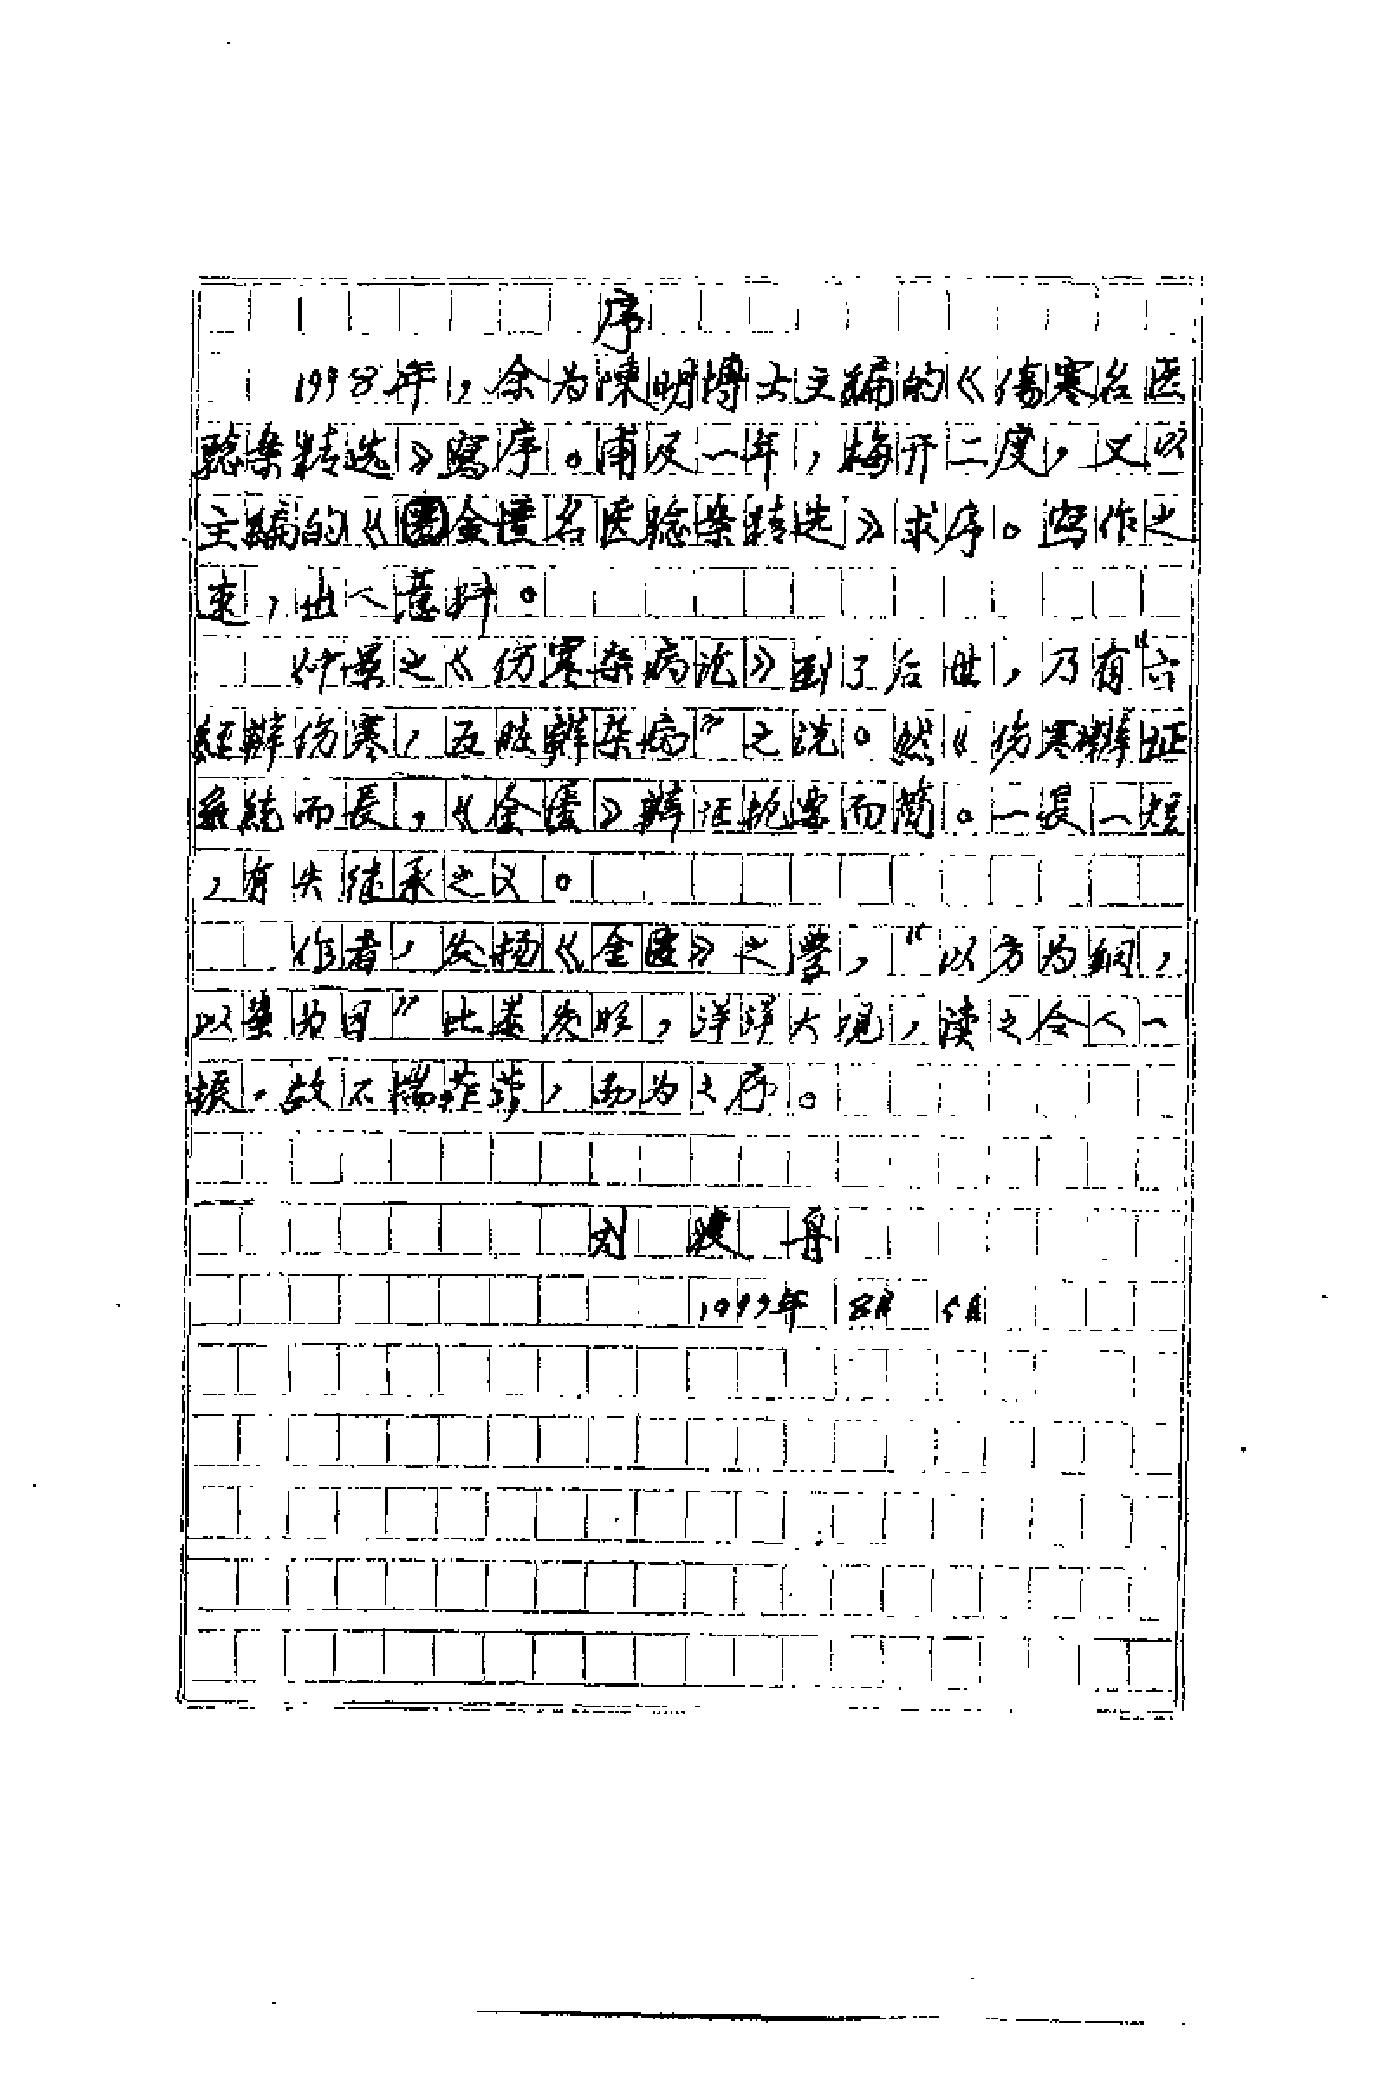 序
1998年，余为陳明博士主编的《傷寒名医
騐案精选》寫序。甫及一年，梅开二度，又以
主编的《金匮名医騐案精选》求序。寫作之
速，出人意料。
仲景之《伤寒杂病论》到了后世，乃有“六
经辨伤寒，五脏辨杂病”之说。然《伤寒辨证
系統而長，《金匮》辨证扼要而简。一長一短
，有失继承之义。
作者，发扬《金匮》之學，“以方为纲，
以案为目”比类发明，洋洋大观，读之令人一
振。故不揣菲薄，勉为之序。
刘渡舟
1999年 8月 5日